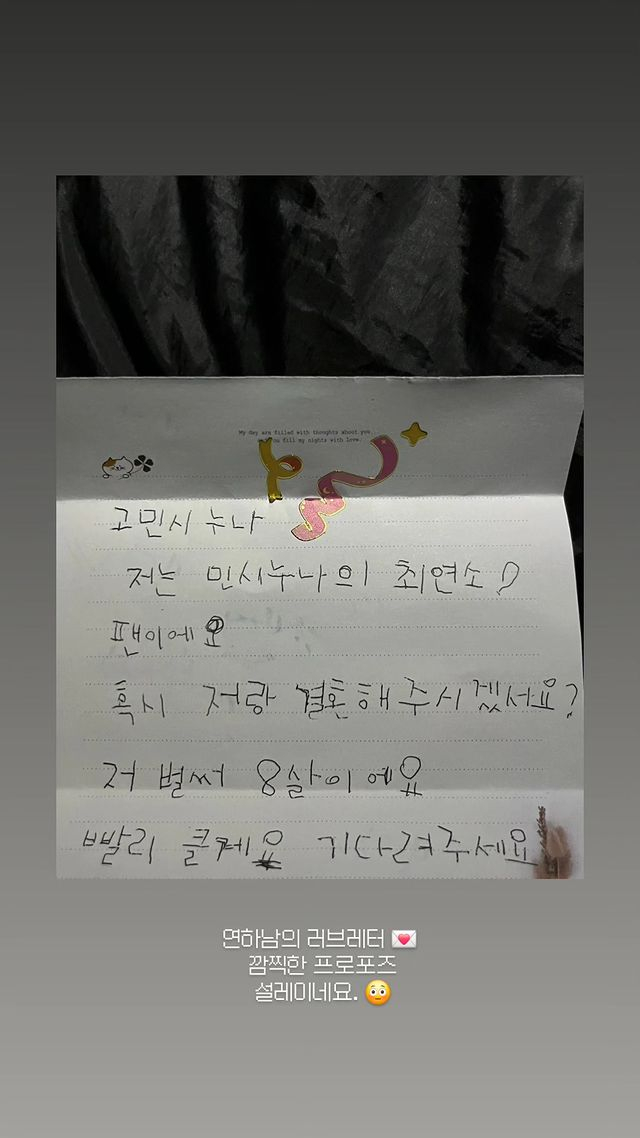 My day are filled with thoughts about you.
you fill my nights with love.
고민시 누나
저는 민시누나의 최연소
팬이에요
혹시 저랑 결혼해주시겠서요?
저 벌써 8살이에요
빨리 클께요 기다려주세요
연하남의 러브레터 💌
깜찍한 프로포즈
설레이네요. 😳